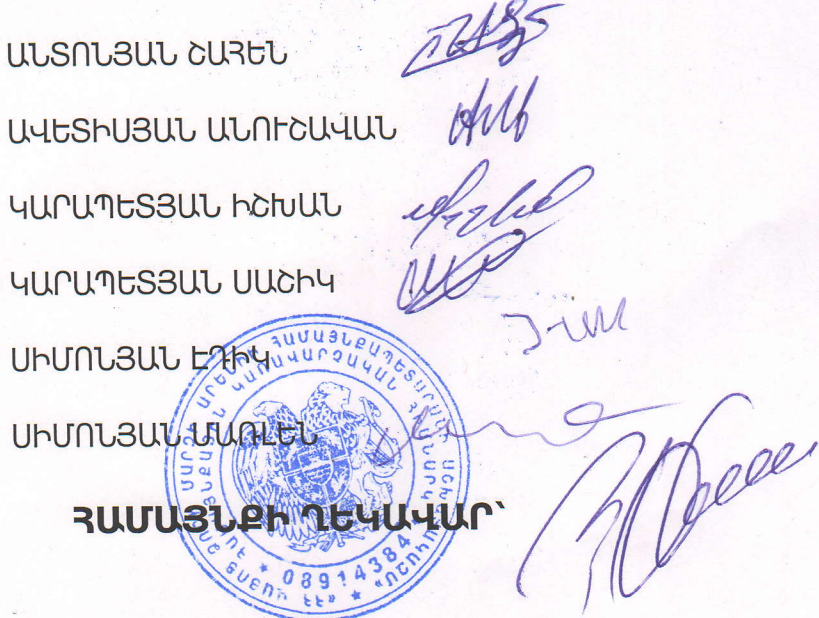 ԱՆՏՈՆՅԱՆ ՇԱՀԵՆ
ԱՎԵՏԻՍՅԱՆ ԱՆՈՒՇԱՎԱՆ
ԿԱՐԱՊԵՏՅԱՆ ԻՇԽԱՆ
ԿԱՐԱՊԵՏՅԱՆ ՍԱՇԻԿ
ՍԻՄՈՆՅԱՆ ԷԴԻԿ
ՍԻՄՈՆՅԱՆ ՄԱՌԼԵՆ
ՀԱՄԱՅՆՔԻ ՂԵԿԱՎԱՐ՝
08914384